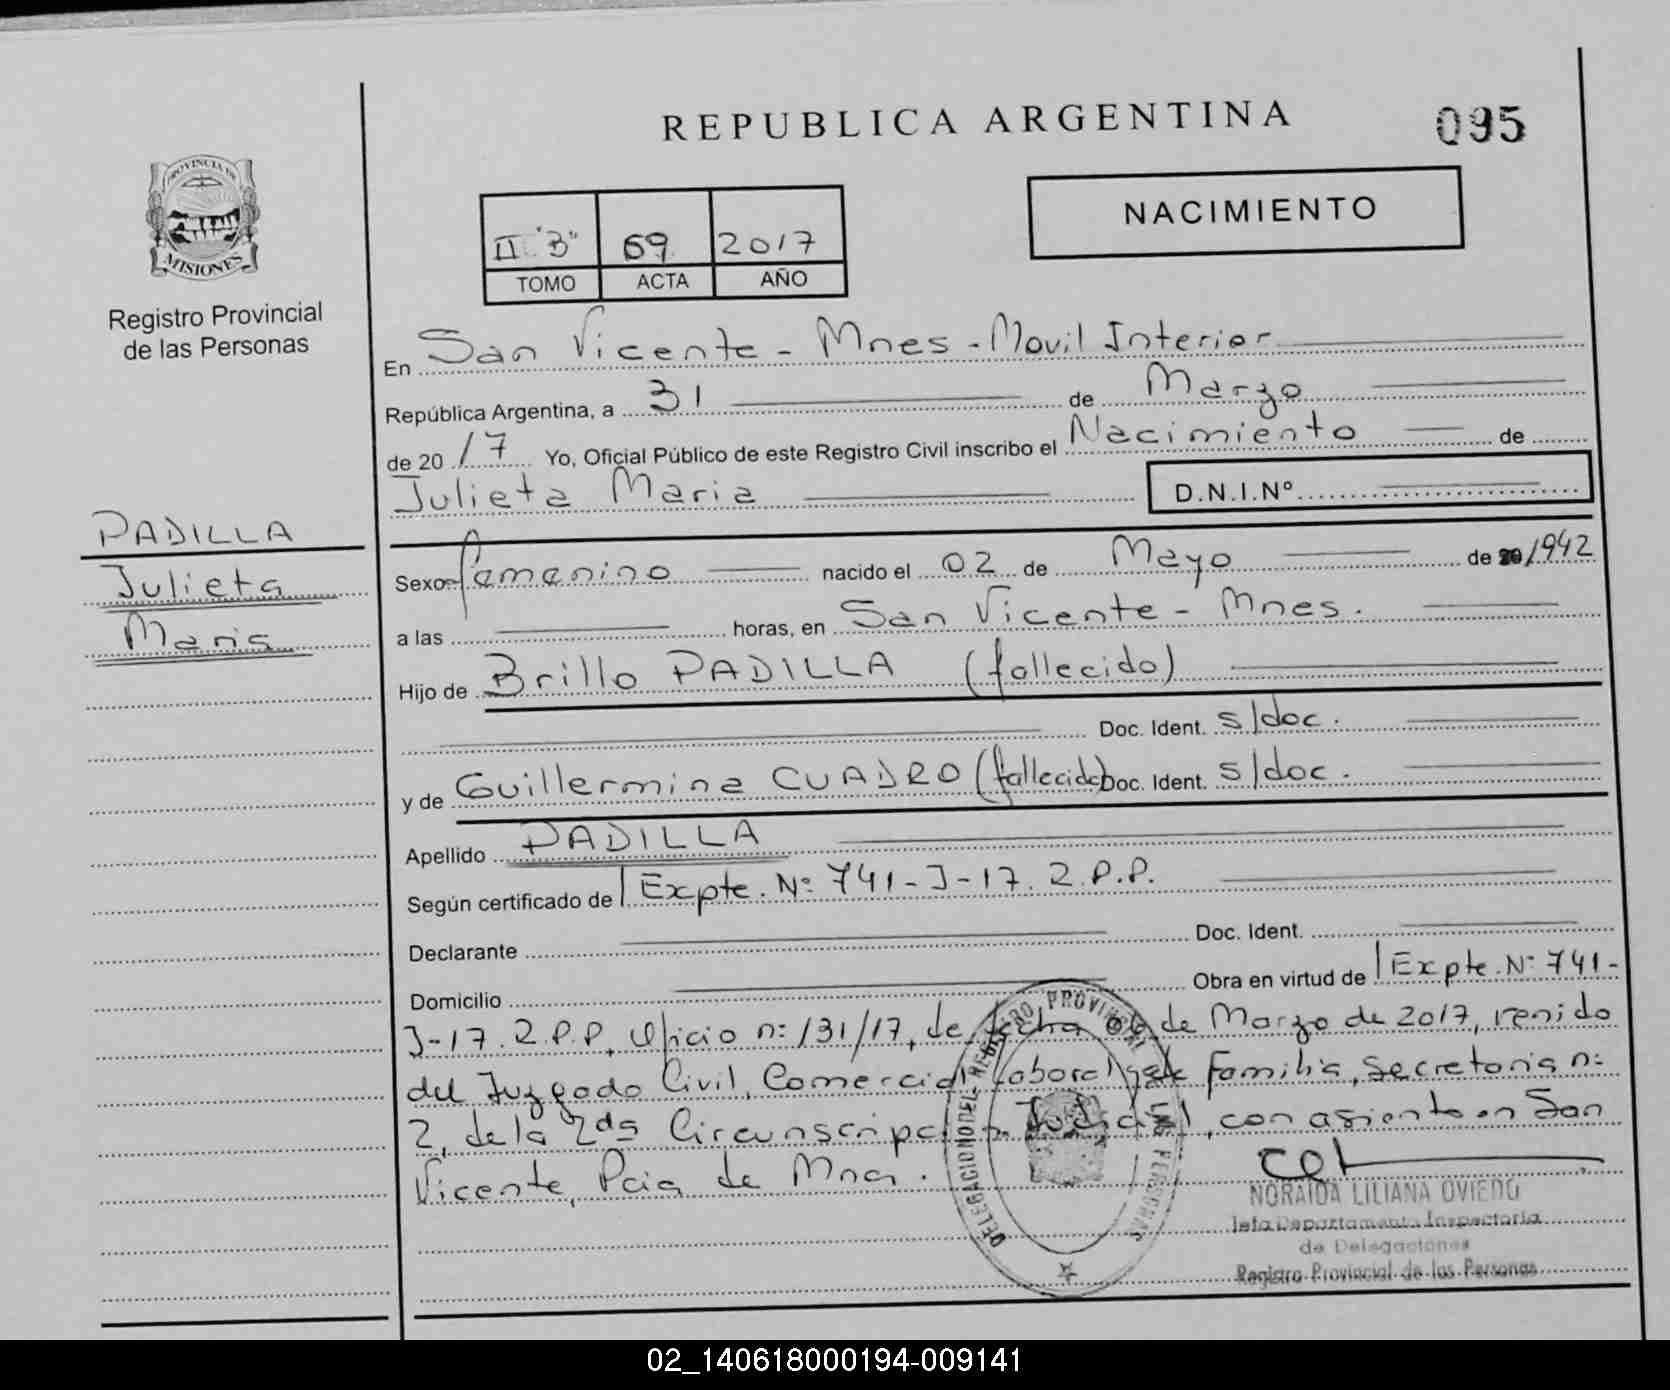 REPUBLICA ARGENTINA
095
PROVINCIA DE
MISIONES
Registro Provincial
de las Personas
NACIMIENTO
II "B" 69 2017
TOMO ACTA AÑO
En San Vicente - Mnes - Movil Interior
República Argentina, a 31 de Marzo
de 2017 Yo, Oficial Público de este Registro Civil inscribo el Nacimiento de
Julieta Maria D.N.I.Nº
PADILLA
Julieta
Maria
Sexo femenino nacido el 02 de Mayo de 1942
a las horas, en San Vicente - Mnes.
Hijo de Brillo PADILLA (fallecido)
Doc. Ident. s/doc.
y de Guillermina CUADRO (fallecida) Doc. Ident. s/doc.
Apellido PADILLA
Según certificado de Expte. Nº 741-J-17. 2.P.P.
Declarante Doc. Ident.
Domicilio Obra en virtud de Expte. Nº 741-
J-17. 2.P.P, Oficio nº 131/17, de fecha de Marzo de 2017, venido
del Juzgado Civil, Comercial, Laboral y de Familia, Secretaria nº
2, de la 2da Circunscripción Judicial, con asiento en San
Vicente, Pcia de Mnes.
DELEGACION DEL REGISTRO PROVINCIAL DE LAS PERSONAS
NORAIDA LILIANA OVIEDO
Jefa Departamento Inspectoria
de Delegaciones
Registro Provincial de las Personas
02_140618000194-009141